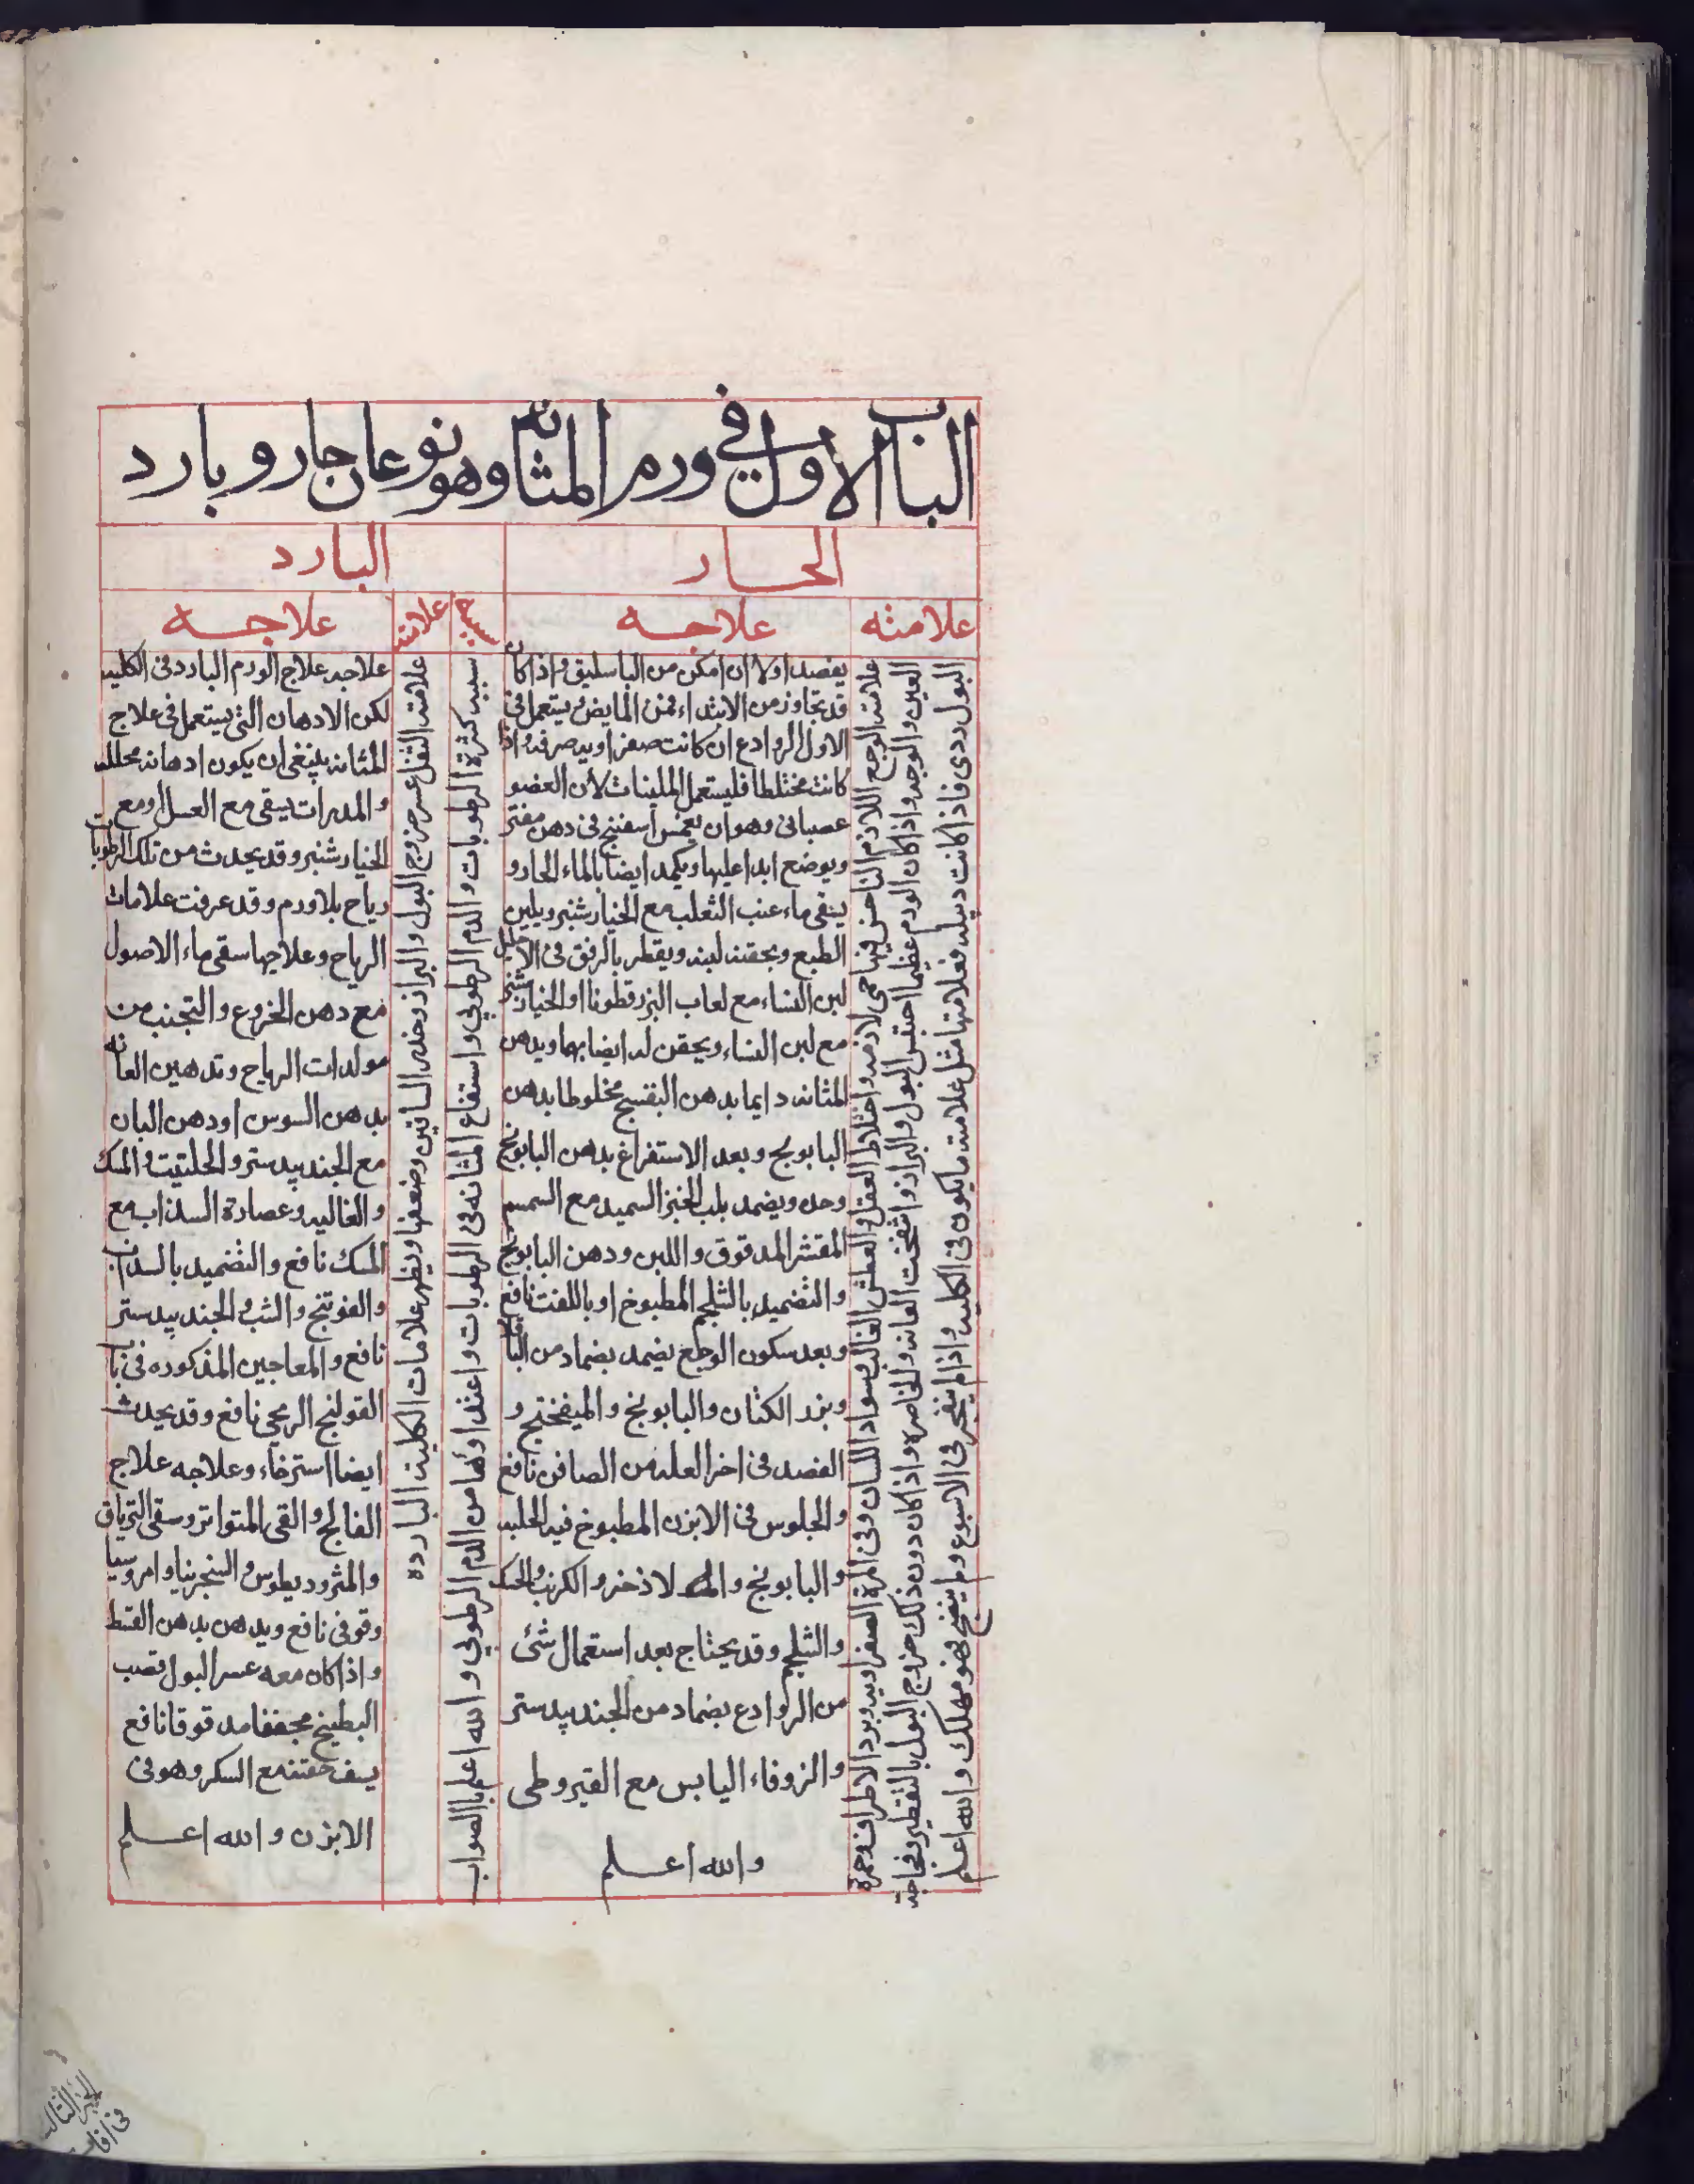 الباب الاول في ورم المثانه وهو نوعان حار وبارد
الحار
البارد
علامته
علاجه
سببه
علامته
علاجه
علامته الوجع اللازم الناخس فيها حمى لازمه واختلاط العقل والعطش الغالب وسواد اللسان وفى المرة الصفراويه وبرد الاطراف وحمرة
العين والوجه واذا كان الورم عظيما احتبس البول والبراز وانتفخت العانه والخاصره واذا كان دون ذلك خروج البول بالتقطير وفجاجة
البول ردى فاذا كانت دبيله فعلامتها مثل علامته ما يكون فى الكليه واذا لم ينفجر فى الاسبوع ولم ينضج فهو مهلك والله اعلم
يفصد اولا ان امكن من الباسليق واذا كان
قد تجاوز من الابتداء فمن المابض ويستعمل فى
الاول الروادع ان كانت صفراويه صرفه واذا
كانت مختلطا فليستعمل الملينات لان العضو
عصبانى وهو ان يغمس اسفنج فى دهن مفتر
ويوضع ابدا عليها ويكمد ايضا بالماء الحار و
يسقى ماء عنب الثعلب مع الخيار شنبر ويلين
الطبع وبحقنه لينه ويقطر بالرفق فى الاحليل
لبن النساء مع لعاب البزر قطونا او الخيار شنبر
مع لبن النساء ويحقن له ايضا بهما ويدهن
المثانه دايما بدهن البنفسج مخلوطا بدهن
البابونج وبعد الاستفراغ بدهن البابونج
وحده ويضمد بلب الخبز السميد مع السمسم
المقشر المدقوق واللبن ودهن البابونج
والتضميد بالثلجم المطبوخ او باللفت نافع
وبعد سكون الوجع يضمد بضماد من الباقلا
وبزر الكتان والبابونج والميفختج و
الفصد فى اخر العله من الصافن نافع
والجلوس فى الابزن المطبوخ فيه الحلبه
والبابونج والاذخر والكرنب والحسك
والثلجم وقد يحتاج بعد استعمال شئ
من الروادع بضماد من الجندبيدستر
والزوفاء اليابس مع القيروطى
والله اعلم
سببه كثرة الرطوبات والدم الرطوبي واستنقاع المثانه فى الرطوبات واغتذاؤها من الدم الرطوبي والله اعلم بالصواب
علامته الثقل عسر خروج البول والبراز وخدر الساقين وضعفها ويظهر علامات الكليه البارده
علاجه علاج الورم البارد فى الكليه
لكن الادهان التى يستعمل فى علاج
المثانه ينبغى ان يكون ادهانه محلله
والمدرات يسقى مع العسل او مع
الخيار شنبر وقد يحدث من تلك الرطوبات
رياح بلا ورم وقد عرفت علامات
الرياح وعلاجها سقى ماء الاصول
مع دهن الخروع والتجنب من
مولدات الرياح وتدهين العانه
بدهن السوس او دهن البان
مع الجندبيدستر والحلتيت والمسك
والغاليه وعصارة السذاب مع
المسك نافع والتضميد بالسذاب
والفوتنج والشب والجندبيدستر
نافع والمعاجين المذكوره فى باب
القولنج الريحى نافع وقد يحدث
ايضا استرخاء وعلاجه علاج
الفالج والقى المتواتر وسقى الترياق
والمثروديطوس والسنجرنيا وامروسيا
وقوفى نافع ويدهن بدهن القسط
واذا كان معه عسر البول قصب
البطيخ مجففا مدقوقا نافع
يسف حفنه مع السكر وهو فى
الابزن والله اعلم
الجزء الثالث
فى افات